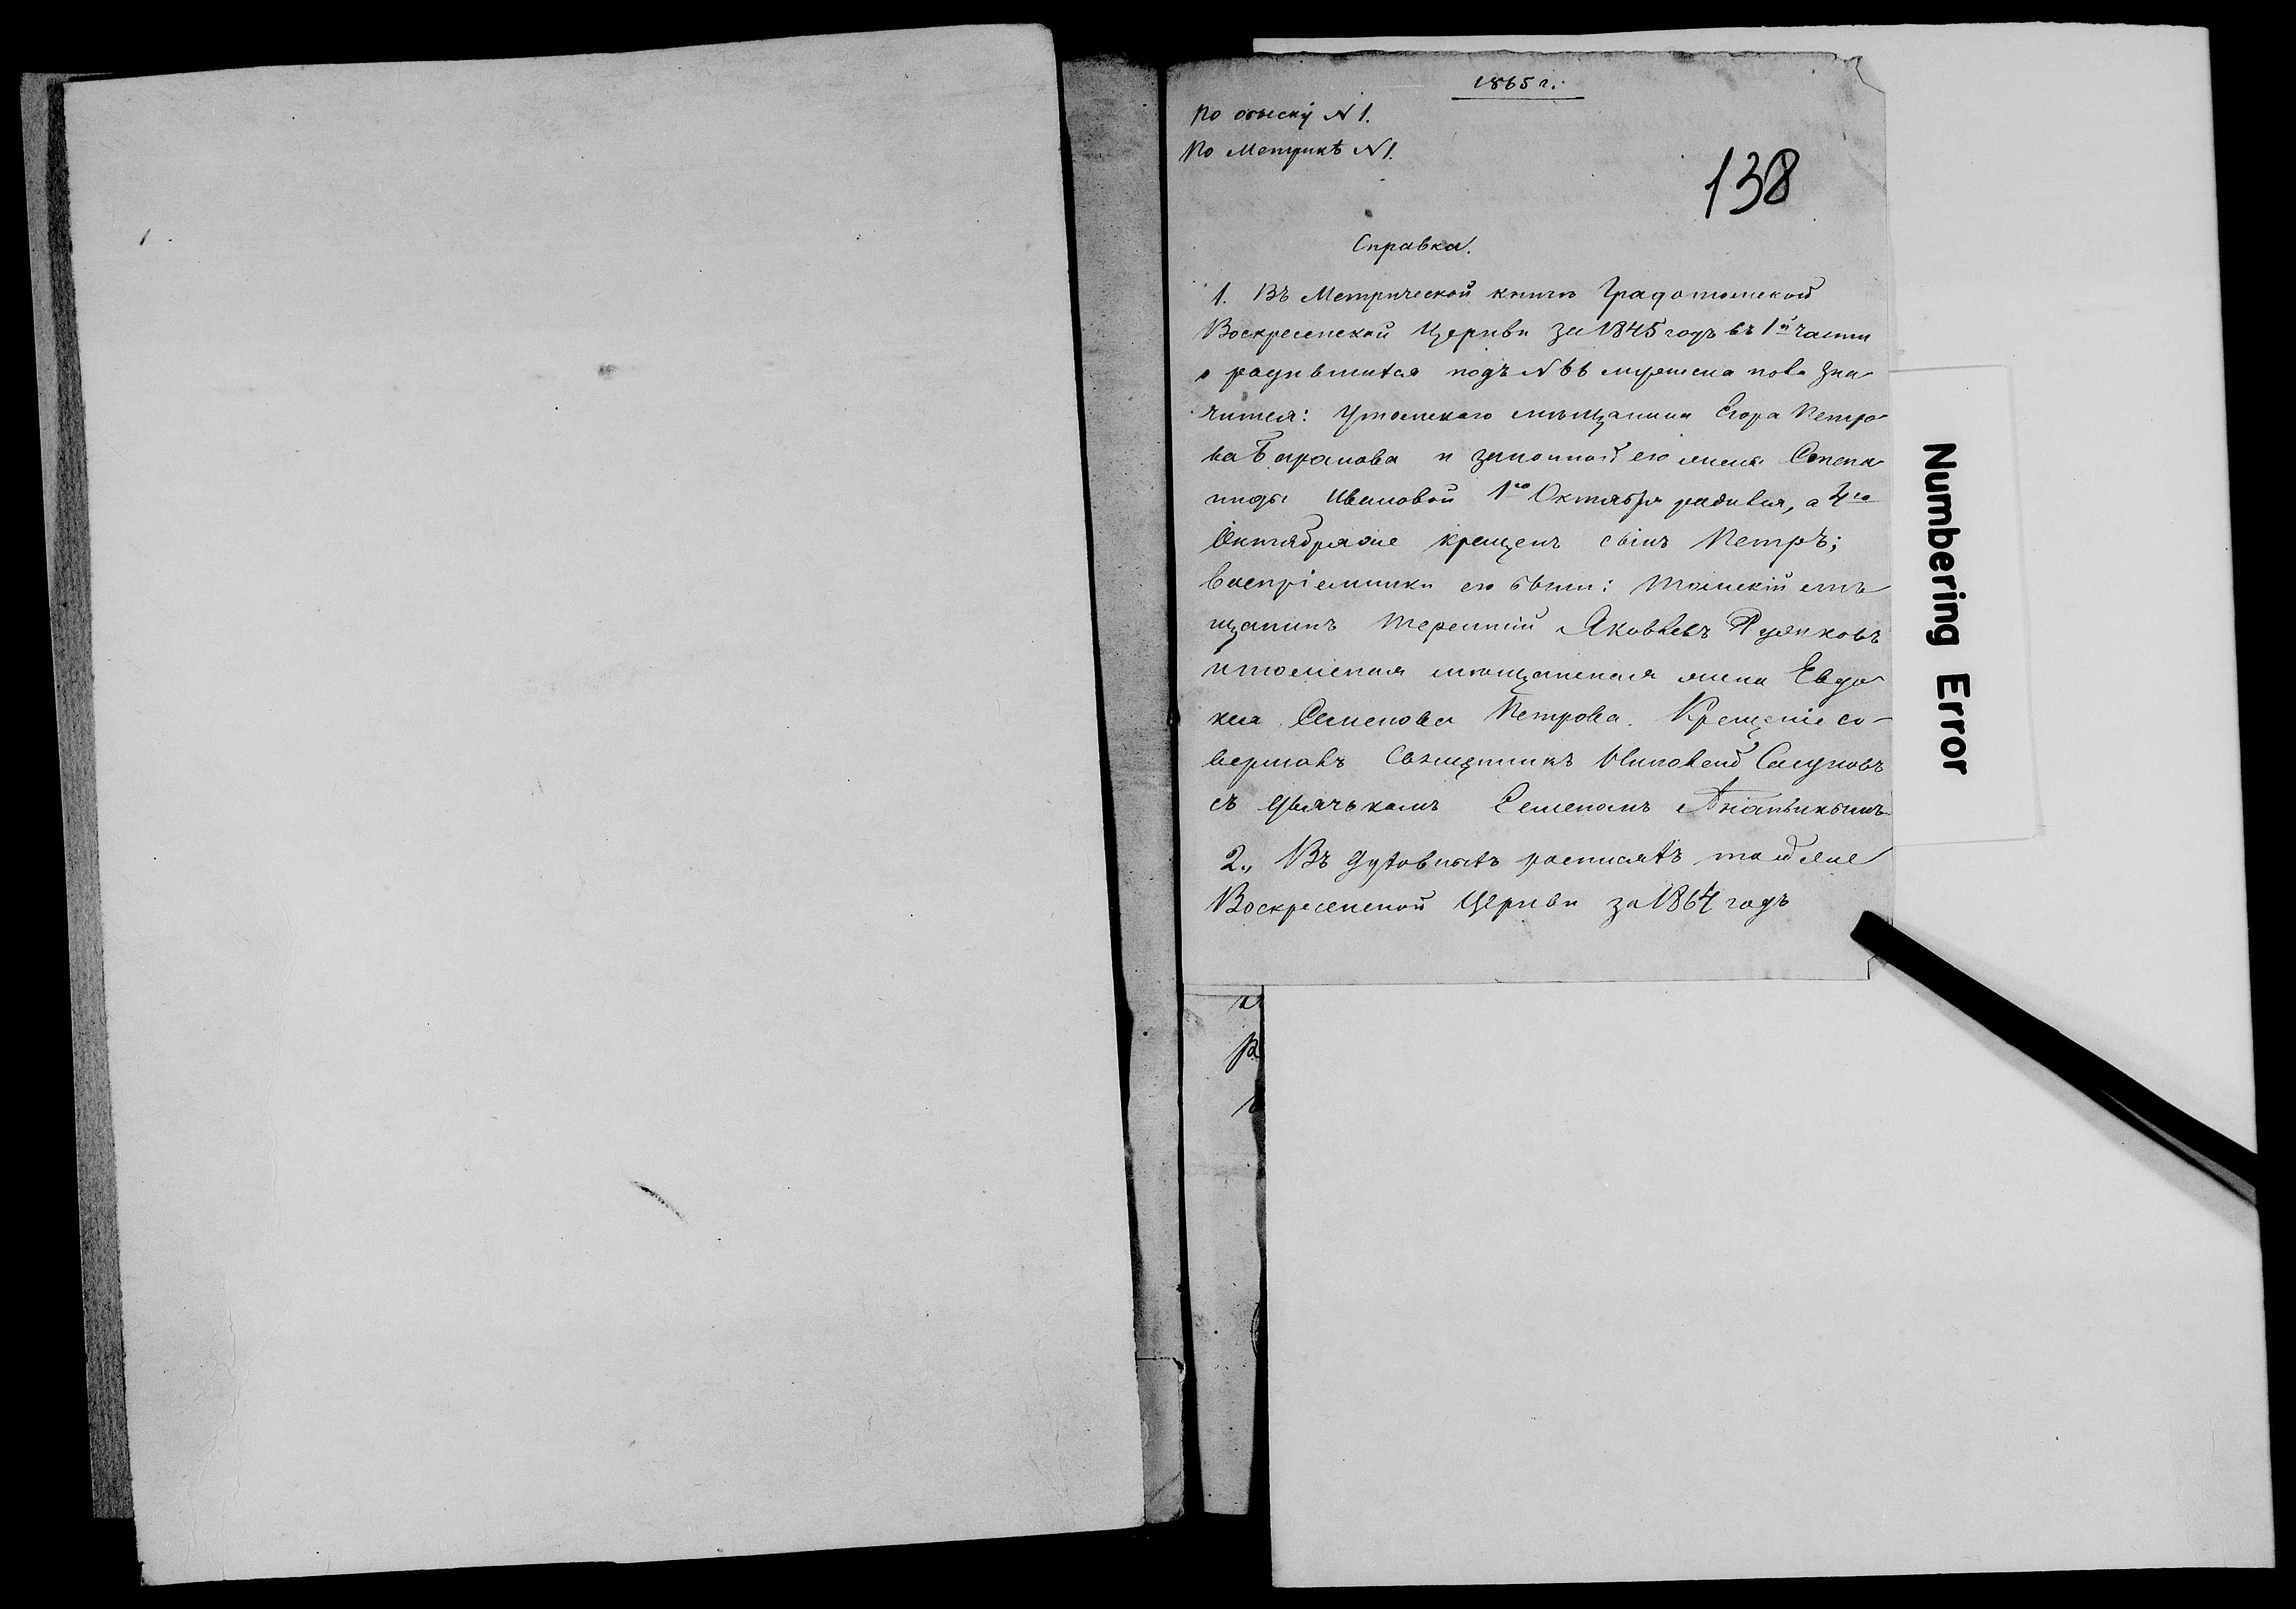 1865 г.
По обыску N 1.
По Метрикѣ N 1.
138
Справка.
1. Въ Метрической книгѣ Градотомской
Воскресенской Церкви за 1845 годъ въ 1й части
о родившихся подъ N 66 мужеска пола зна-
чится: Утомскаго мѣщанина Егора Петро-
ва Баранова и законной его жены Степа-
ниды Ивановой 1го Октября родился, а 4го
Октября же крещенъ сынъ Петръ;
Воспріемники его были: томскій мѣ-
щанинъ Терентій Яковлевъ
и томская мѣщанская жена Евдо-
кея Семенова Петрова. Крещеніе со-
вершалъ Священникъ
съ дьячькомъ Семеномъ Ананьинымъ
2., Въ духовныхъ росписяхъ той же
Воскресенской Церкви за 1864 годъ
Numbering Error